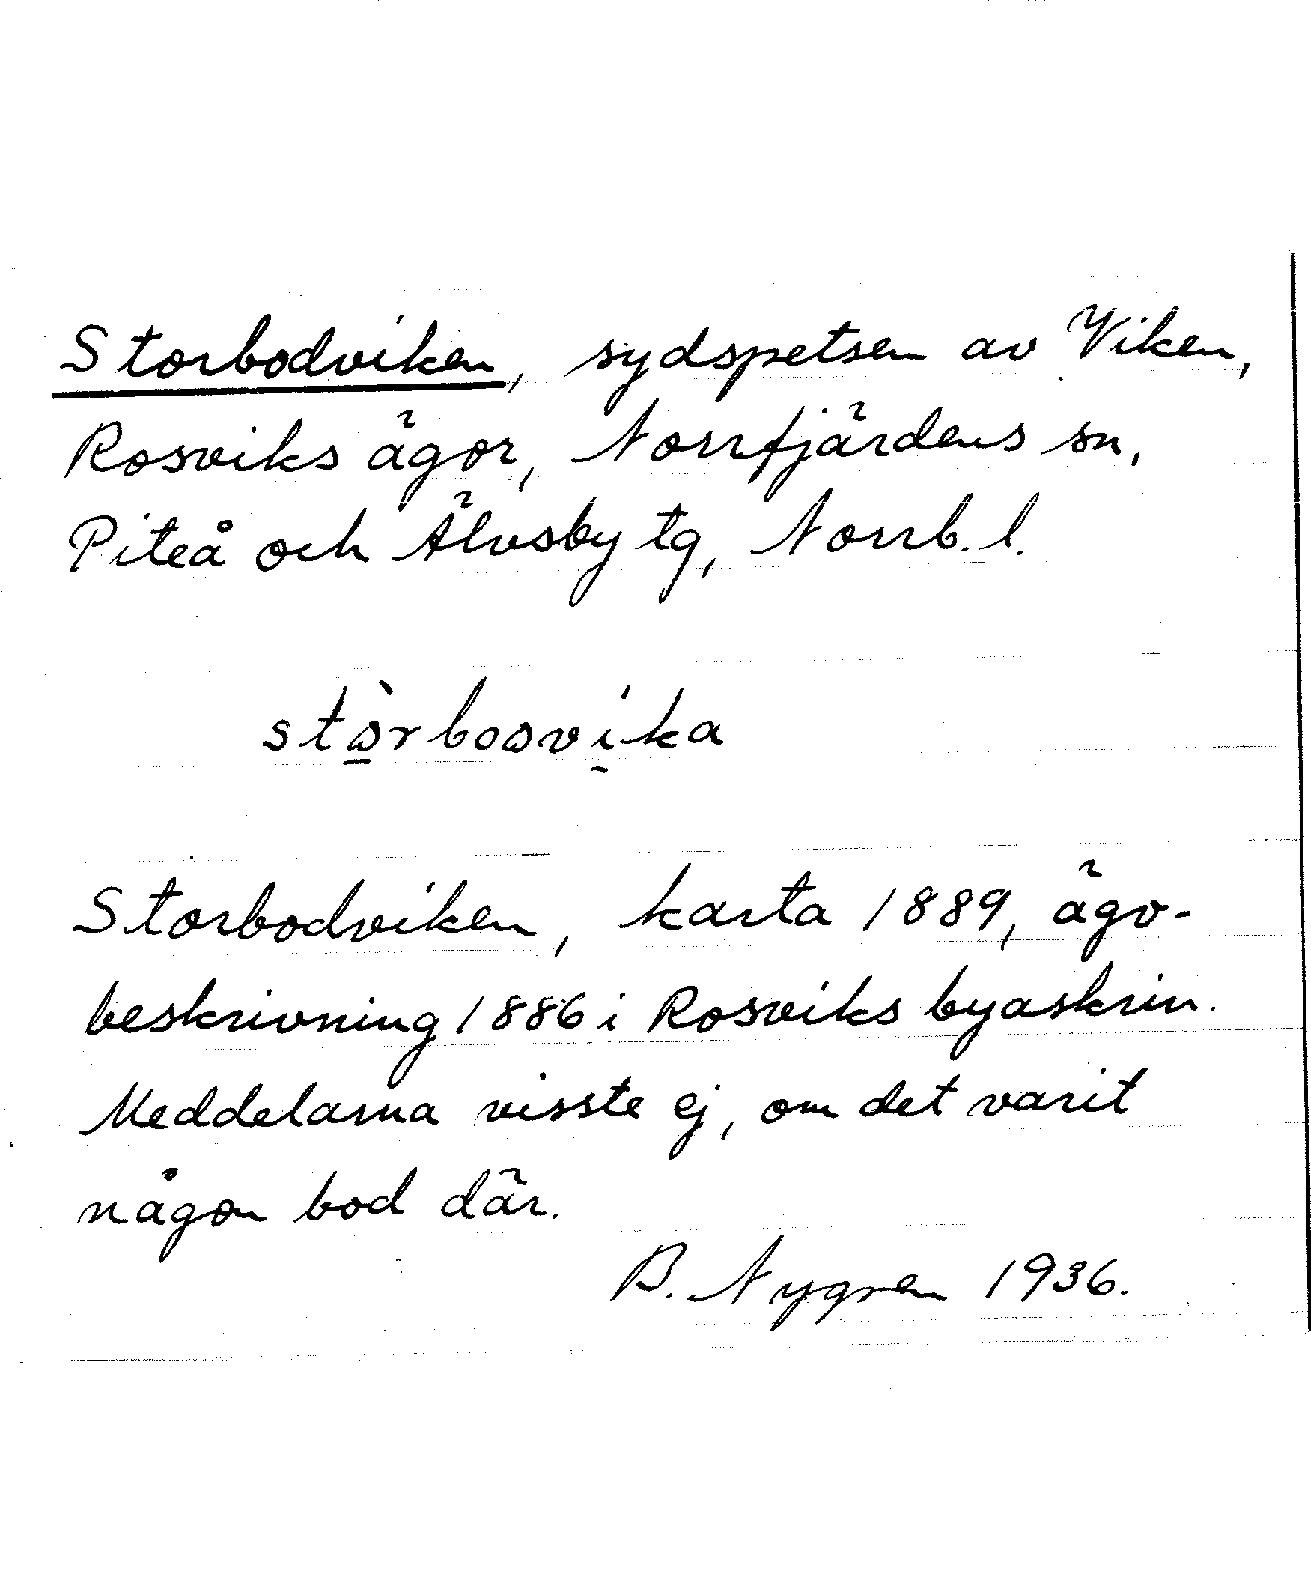 Storbodviken, sydspetsen av Viken,
Rosviks ägor, Norrfjärdens sn,
Piteå och Älvsby tg, Norrb. l.
stò̱rbosvi̱ka
Storbodviken, karta 1889, ägo-
beskrivning 1886 i Rosviks byaskrin.
Meddelarna visste ej, om det varit
någon bod där.
B. Nygren 1936.